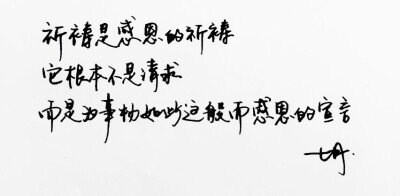 祈祷是感恩的祈祷
它根本不是请求
而是为事物如此这般而感恩的宣言